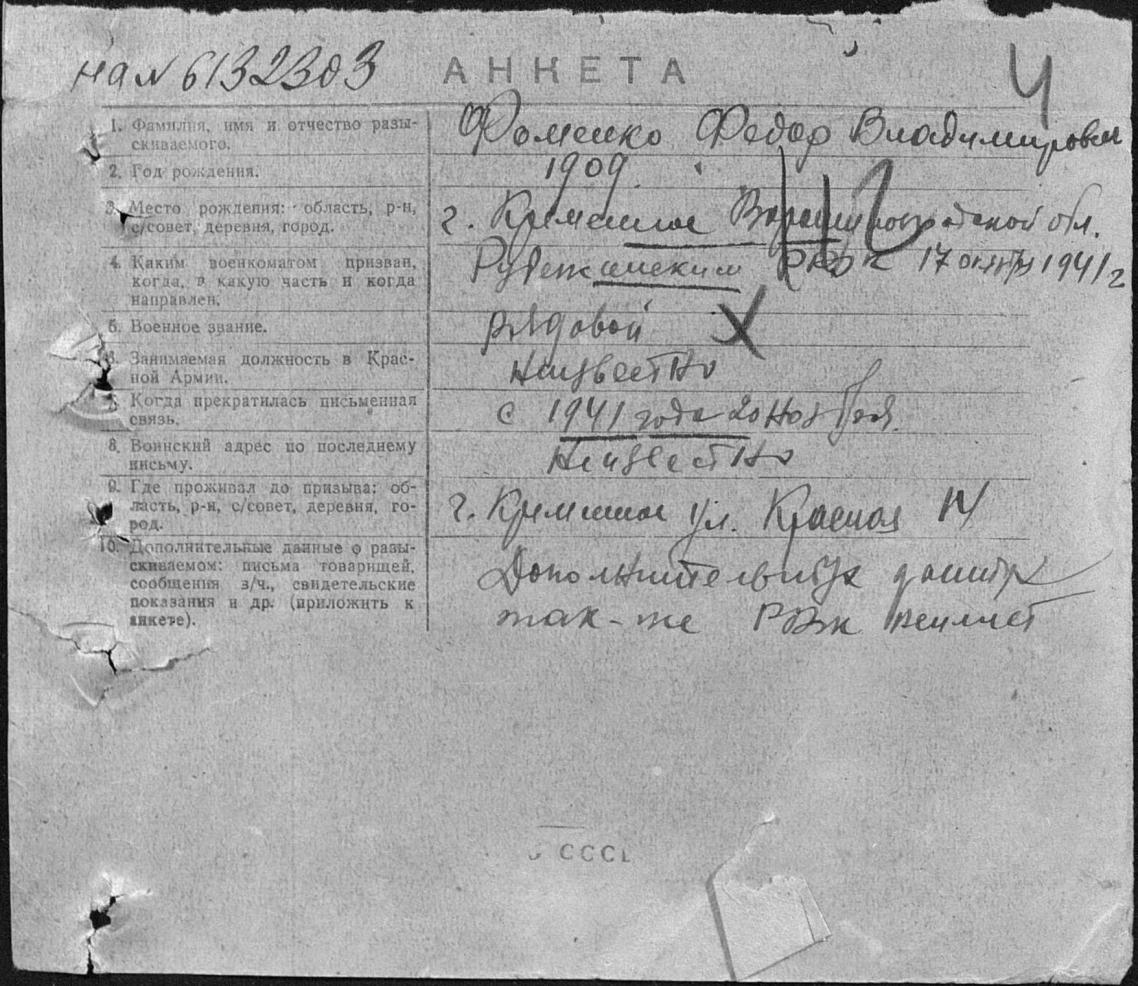 на № 6132303 АНКЕТА 4
1. Фамилия, имя и отчество разы-
скиваемого.
Фоменко Федор Владимирович
2. Год рождения.
1909
3. Место рождения: область, р-н,
с/совет, деревня, город.
г. Кременное Ворошиловградской обл.
4. Каким военкоматом призван,
когда, в какую часть и когда
направлен.
Рубежанским РВК 17 октября 1941 г
5. Военное звание.
рядовой
6. Занимаемая должность в Крас-
ной Армии.
Неизвестно
7. Когда прекратилась письменная
связь.
с 1941 года 20 ноября
8. Воинский адрес по последнему
письму.
Неизвестно
9. Где проживал до призыва: об-
ласть, р-н, с/совет, деревня, го-
род.
г. Кременное ул. Красная
10. Дополнительные данные о разы-
скиваемом: письма товарищей,
сообщения з/ч., свидетельские
показания и др. (приложить к
анкете).
так-же РВК
СССР